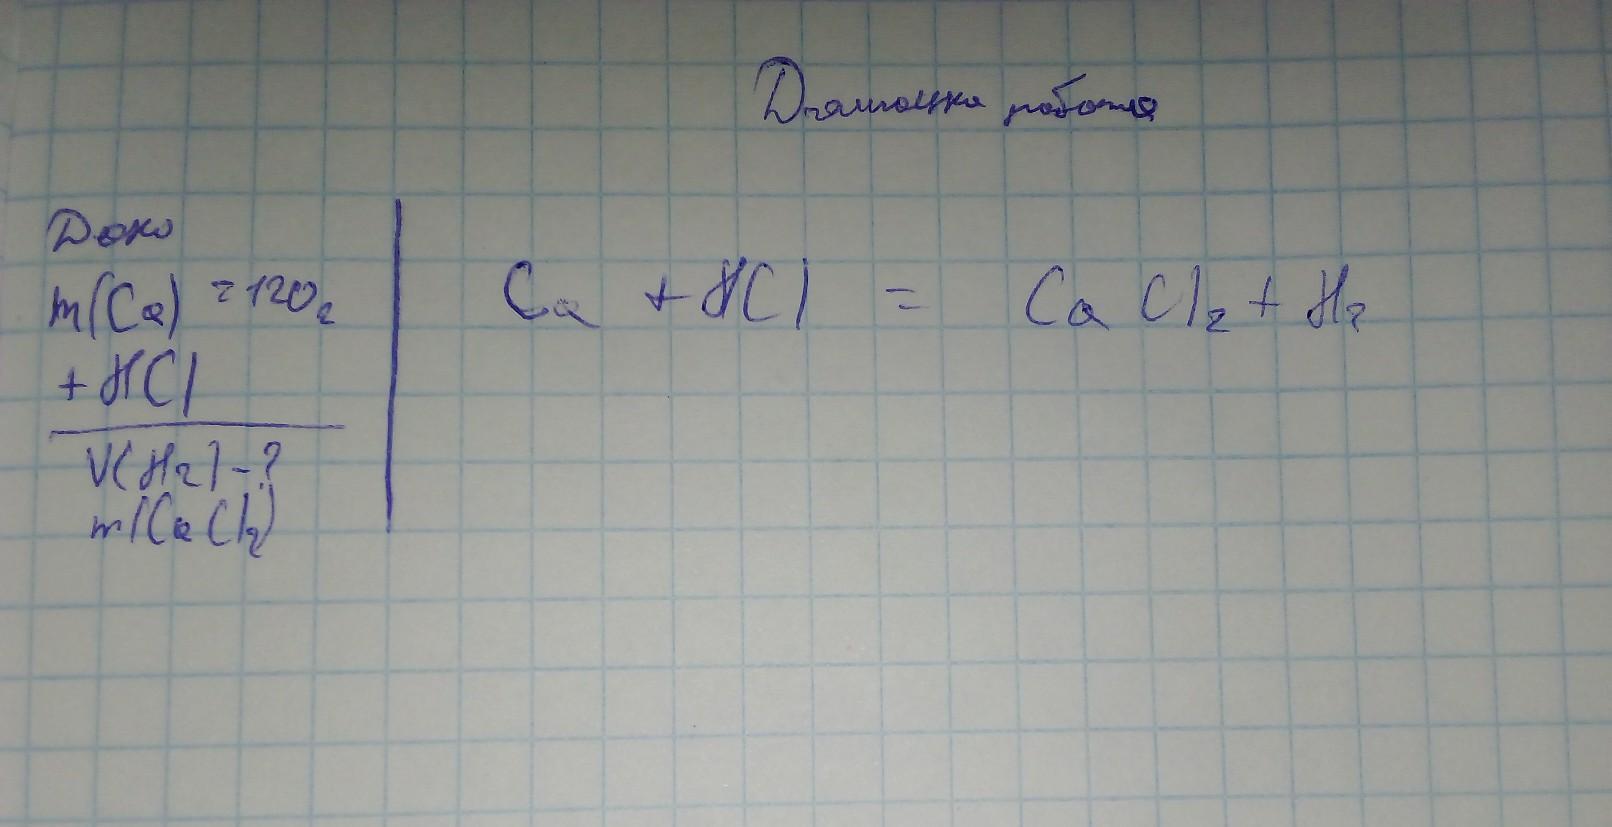 Домашка работа
Дано
m(Ca) = 120г
+ HCl
V(H₂) - ?
m(CaCl₂)
Ca + HCl = CaCl₂ + H₂